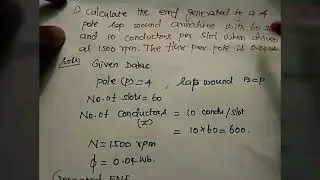 1) Calculate the emf generated to a 4
pole lap wound armature with 60 slots
and 10 conductors per slot when driven
at 1500 rpm. The flux per pole is
Soln: Given Data:
pole (P) = 4, lap wound
No. of slots = 60
No. of conductors = 10 condu/slot
(Z) = 10×60 = 600.
N = 1500 rpm
ϕ = 0.04 Wb.
Generated EMF